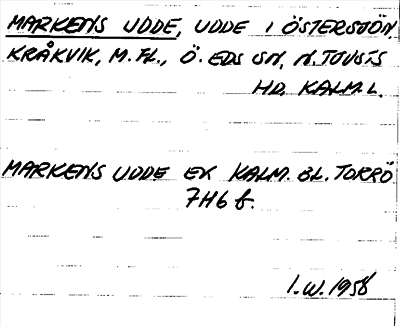 MARKENS UDDE, UDDE I ÖSTERSJÖN.
KRÅKVIK, M. FL., Ö. EDS SN, N. TJUSTS
HD, KALM. L.
MARKENS UDDE EK KALM. BL. TORRÖ
7H6 f.
I.W. 1958